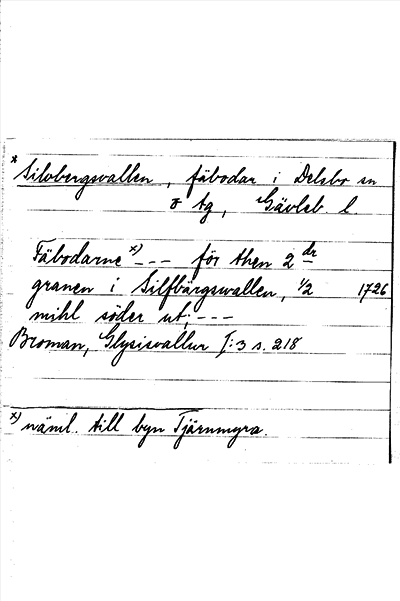 * Silvbergsvallen, fäbodar i Delsbo sn
o tg, Gävleb. l.
Fäbodarne x) --- för then 2 dr
granen i Silfbärgswallen, 1/2 1726
mihl söder ut; ---
Broman, Glysisvallur I:3 s. 218
x) näml. till byn Tjärnmyra.